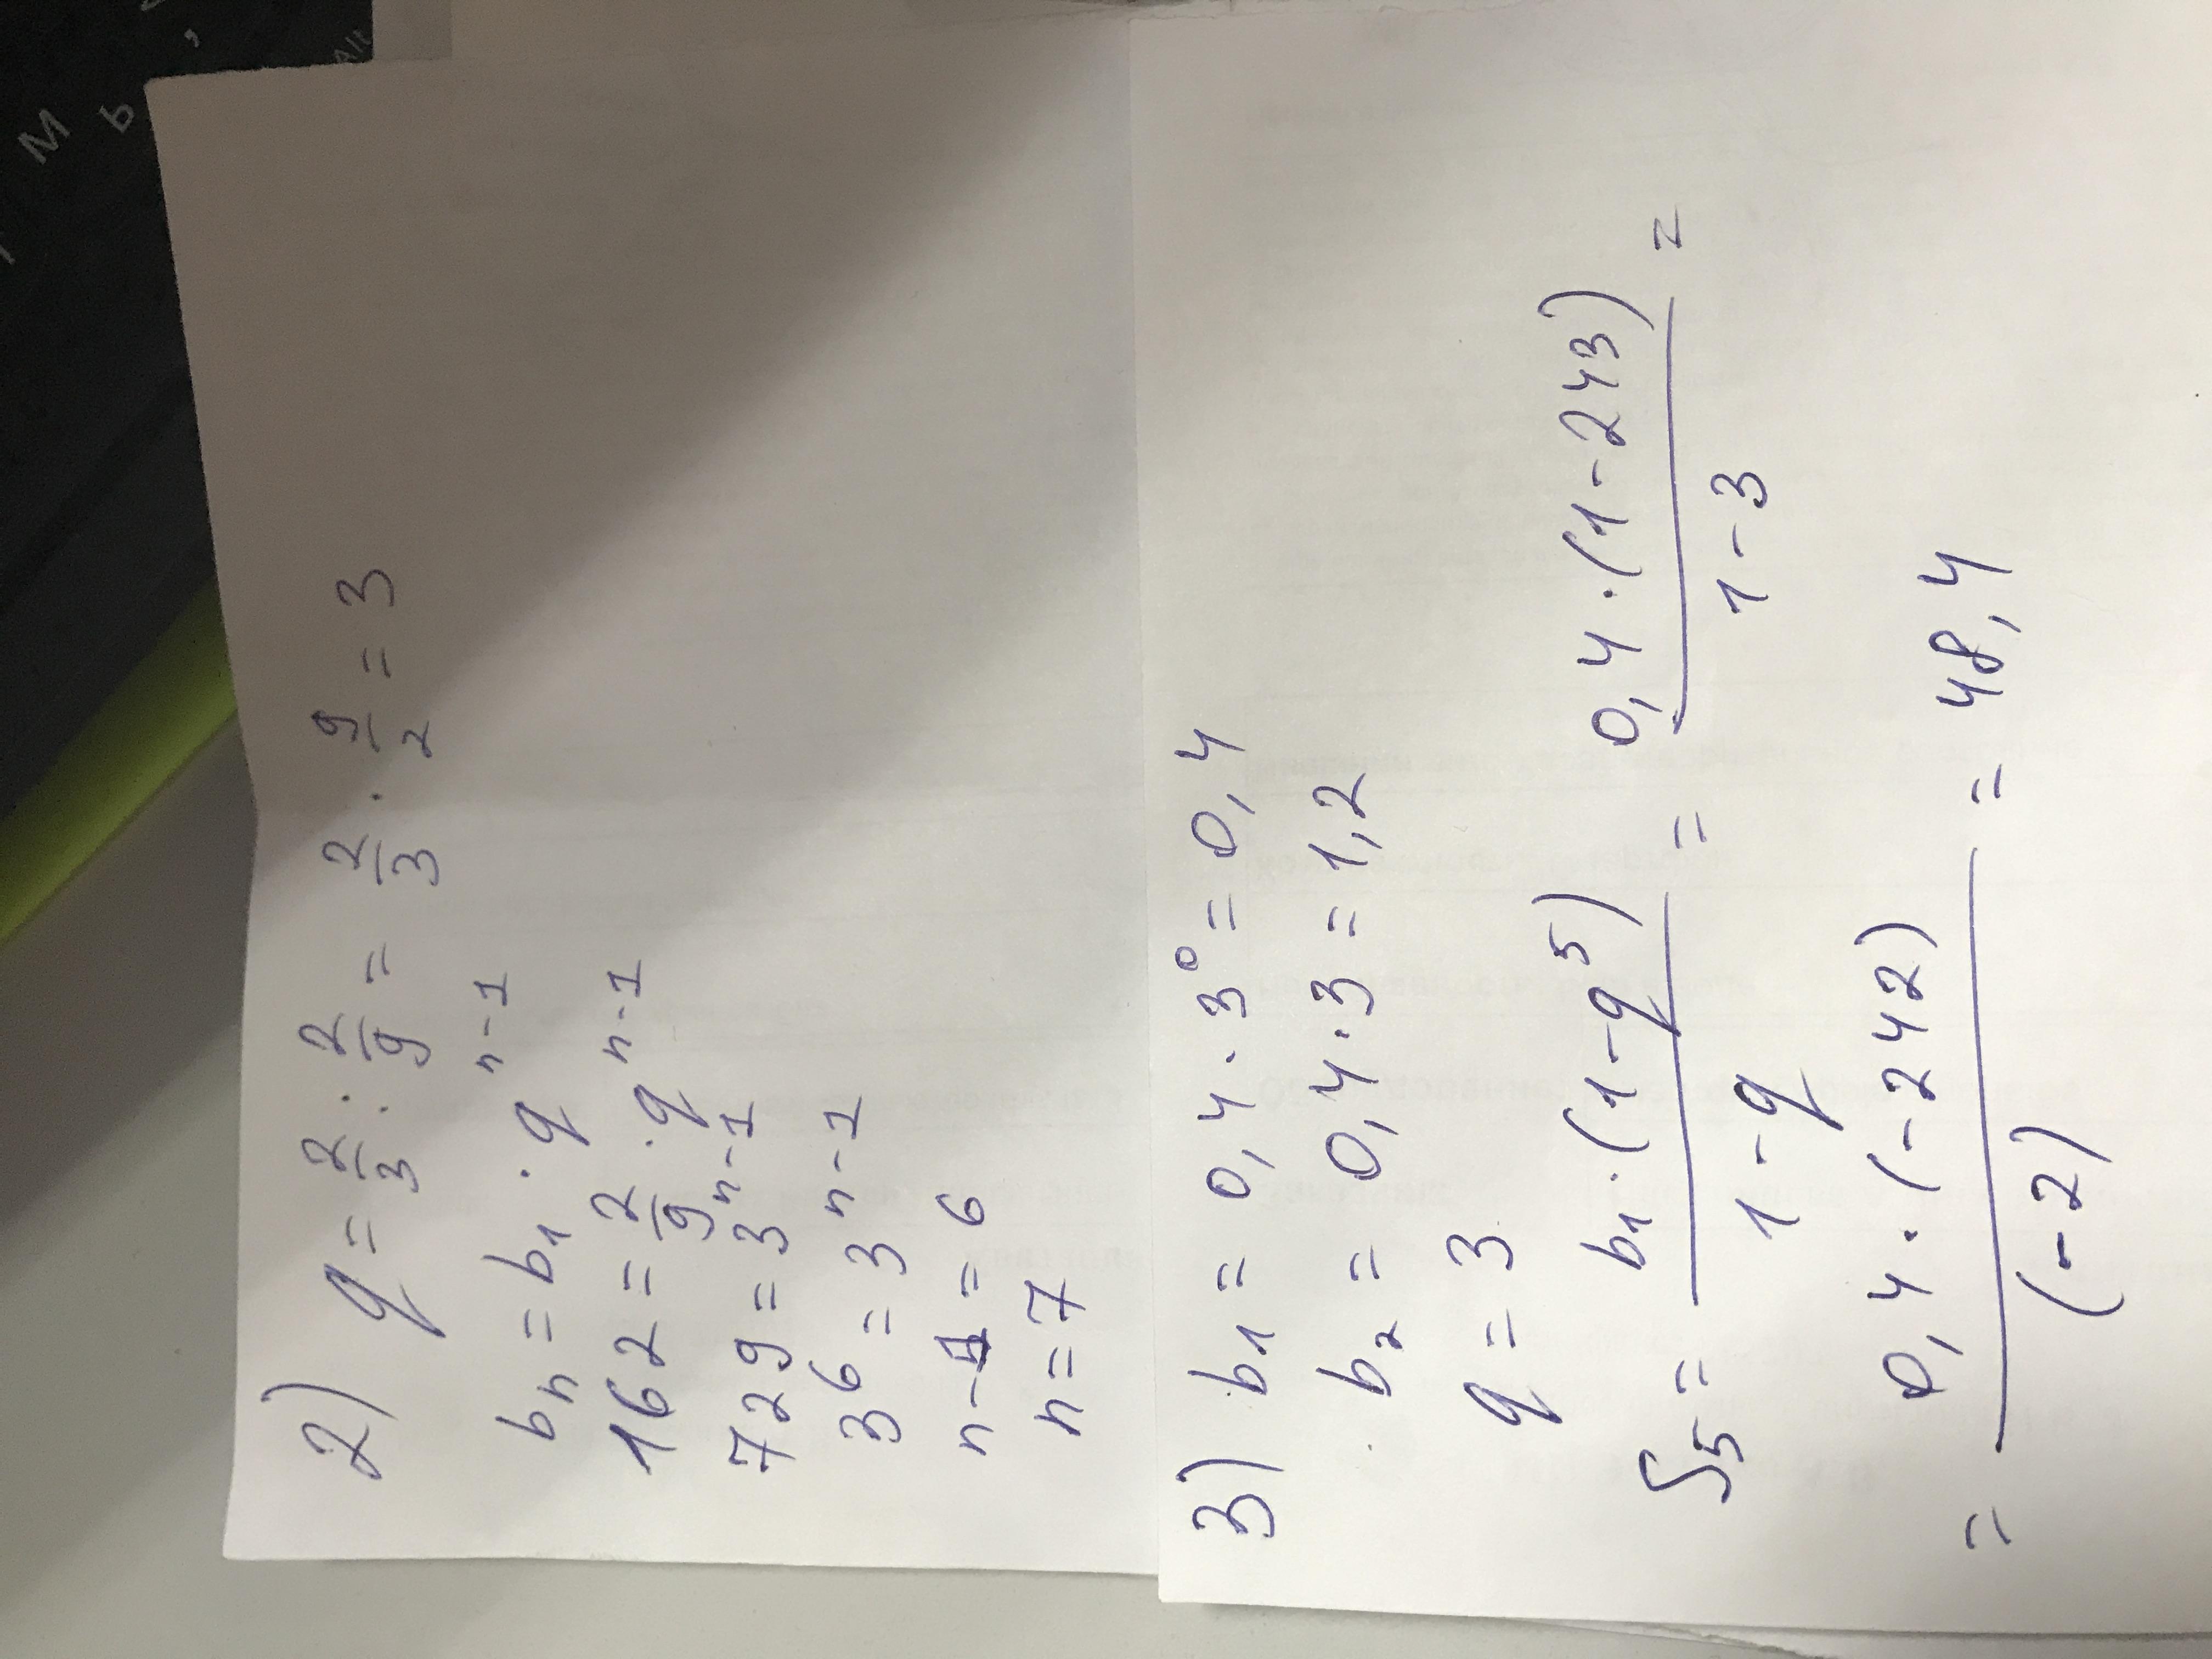 2) q = 2/3 : 2/9 = 2/3 · 9/2 = 3
bₙ = b₁ · qⁿ⁻¹
162 = 2/9 · qⁿ⁻¹
729 = 3ⁿ⁻¹
3⁶ = 3ⁿ⁻¹
n-1 = 6
n = 7
3) b₁ = 0,4 · 3⁰ = 0,4
b₂ = 0,4 · 3 = 1,2
q = 3
S₅ = b₁ · (1 - q⁵) / 1 - q = 0,4 · (1 - 243) / 1 - 3 =
= 0,4 · (-242) / (-2) = 48,4
M
b
,
Alt